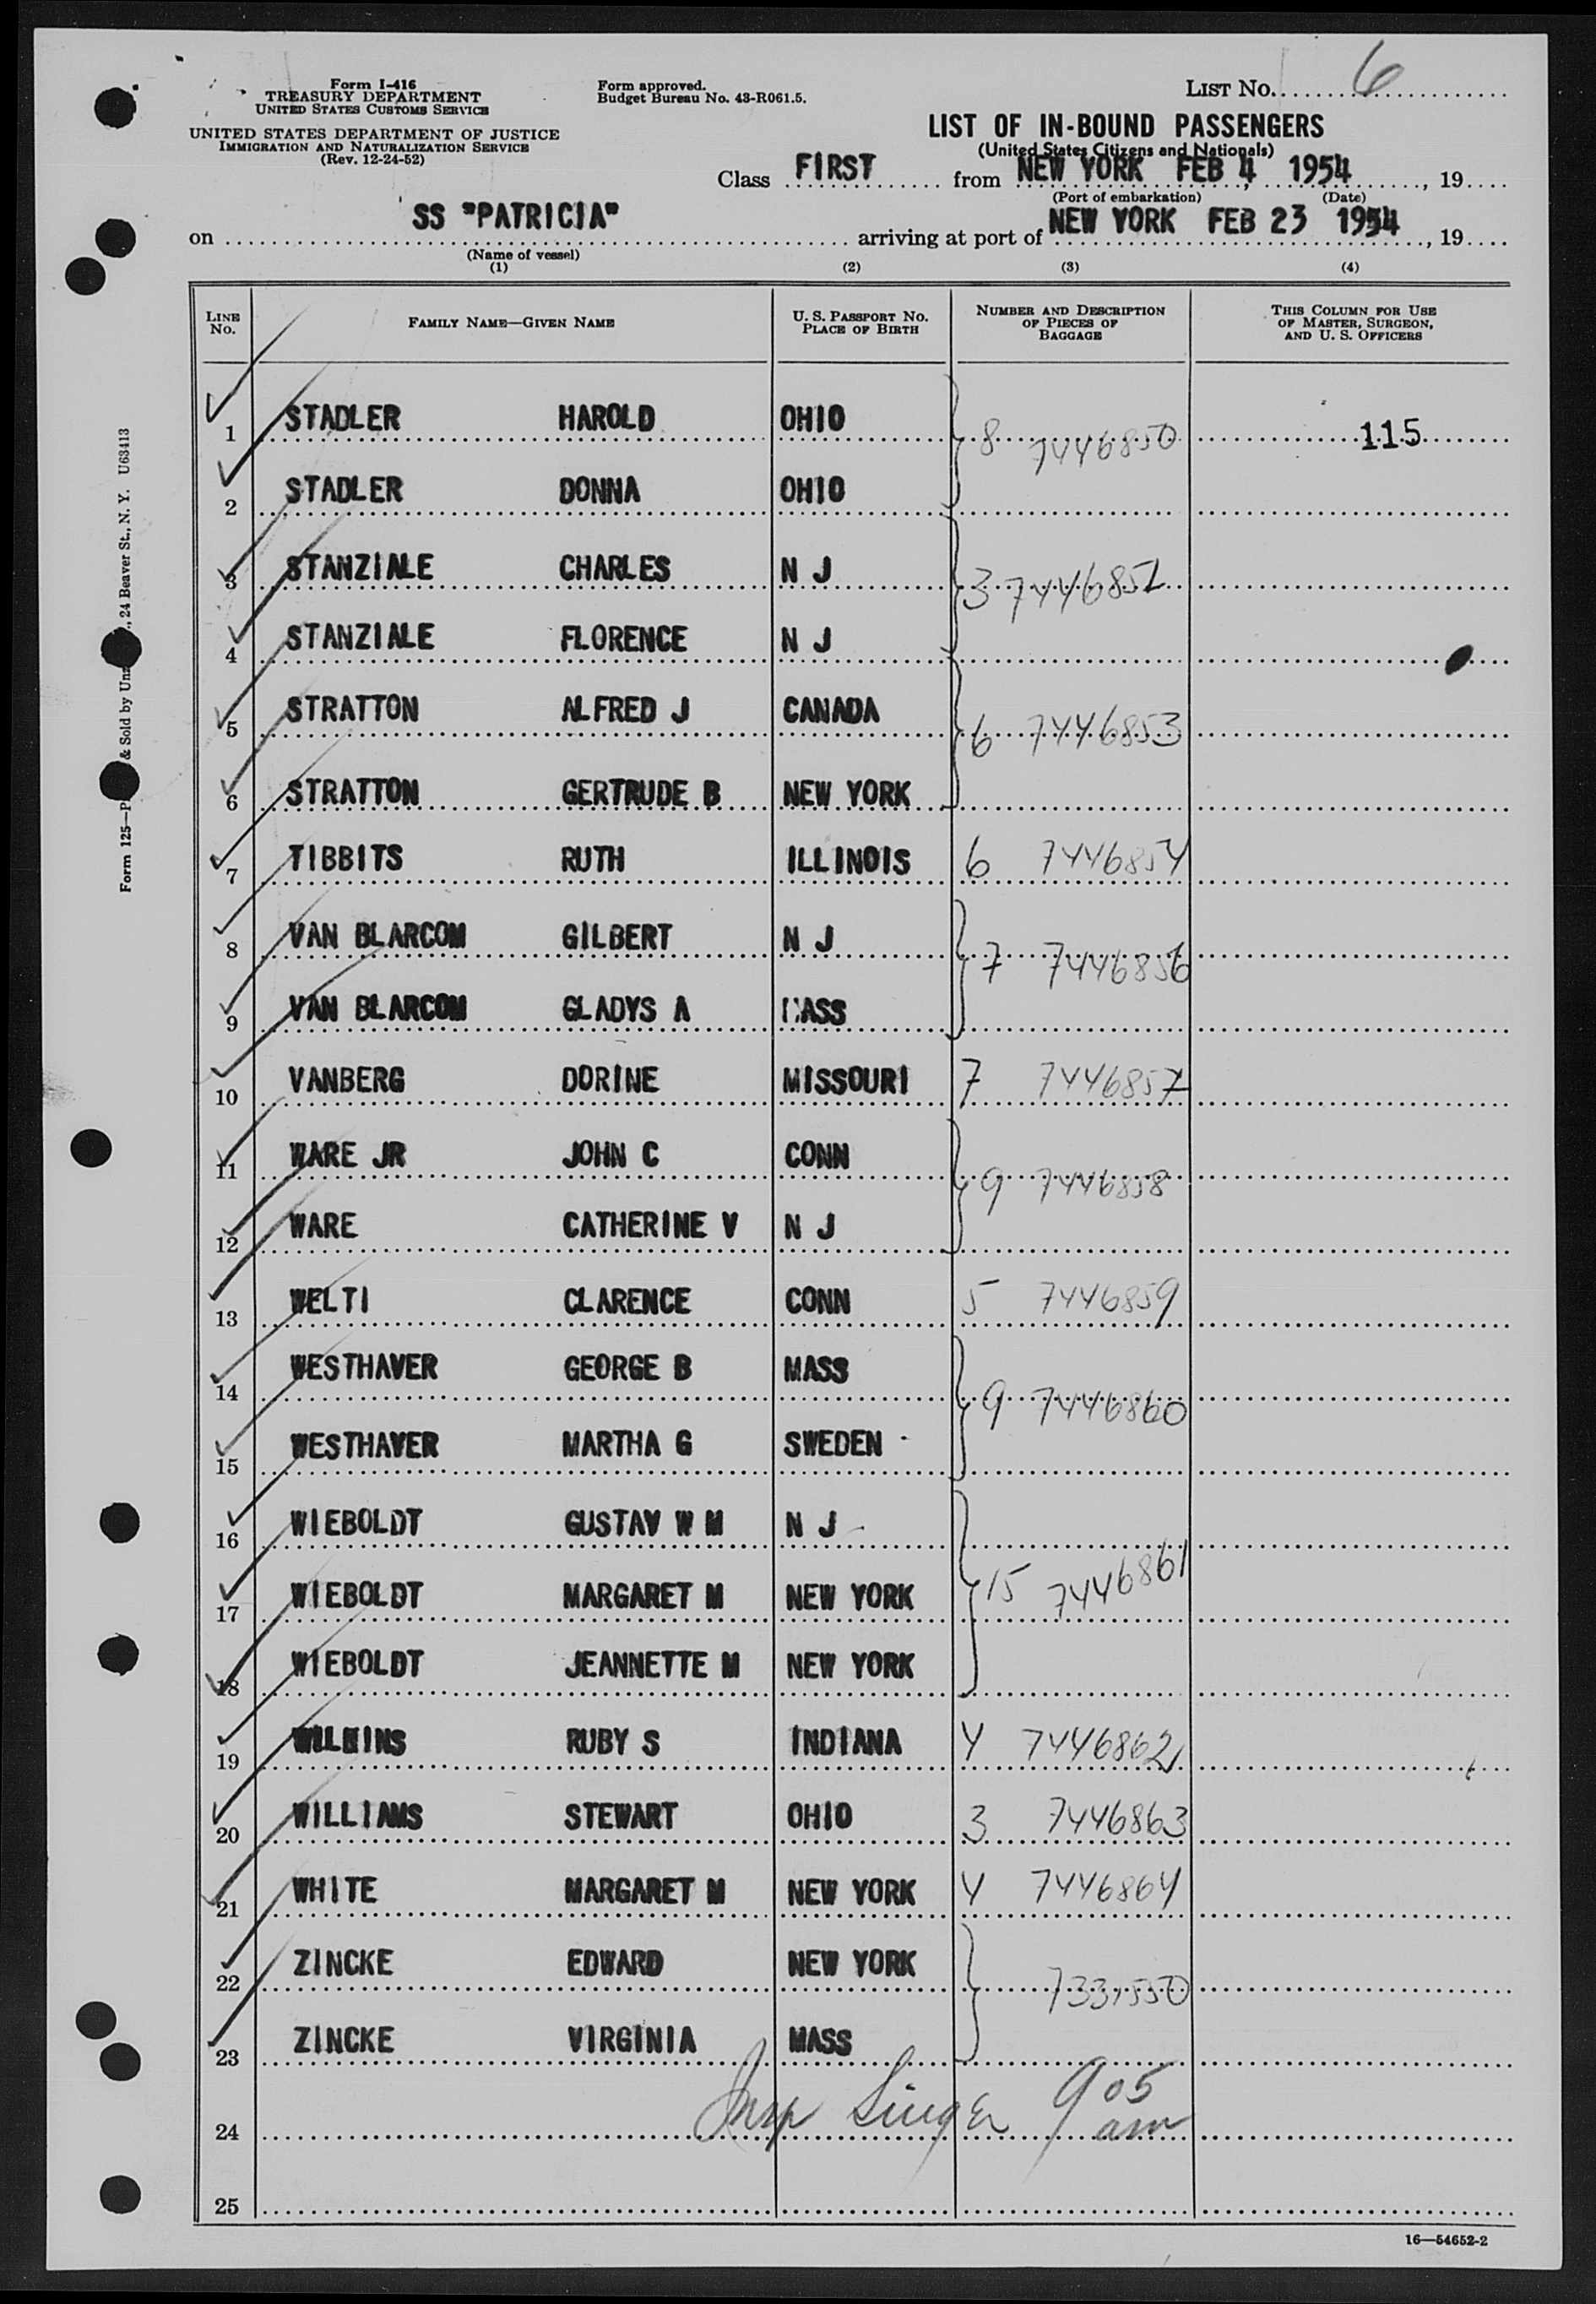 Form I-416
TREASURY DEPARTMENT
UNITED STATES CUSTOMS SERVICE
UNITED STATES DEPARTMENT OF JUSTICE
IMMIGRATION AND NATURALIZATION SERVICE
(Rev. 12-24-52)
Form approved.
Budget Bureau No. 43-R061.5.
LIST No. 6
LIST OF IN-BOUND PASSENGERS
(United States Citizens and Nationals)
Class FIRST from NEW YORK FEB 4, 1954, 19
(Port of embarkation) (Date)
on SS "PATRICIA" arriving at port of NEW YORK FEB 23 1954, 19
(Name of vessel)
(1) (2) (3) (4)
LINE No. FAMILY NAME—GIVEN NAME U. S. PASSPORT No. PLACE OF BIRTH NUMBER AND DESCRIPTION OF PIECES OF BAGGAGE THIS COLUMN FOR USE OF MASTER, SURGEON, AND U. S. OFFICERS
1 STADLER HAROLD OHIO 8 7446850 115
2 STADLER DONNA OHIO
3 STANZIALE CHARLES N J 3 7446852
4 STANZIALE FLORENCE N J
5 STRATTON ALFRED J CANADA 6 7446853
6 STRATTON GERTRUDE B NEW YORK
7 TIBBITS RUTH ILLINOIS 6 7446854
8 VAN BLARCOM GILBERT N J 7 7446856
9 VAN BLARCOM GLADYS A MASS
10 VANBERG DORINE MISSOURI 7 7446857
11 WARE JR JOHN C CONN 9 7446858
12 WARE CATHERINE V N J
13 WELTI CLARENCE CONN 5 7446859
14 WESTHAVER GEORGE B MASS 9 7446860
15 WESTHAVER MARTHA G SWEDEN
16 WIEBOLDT GUSTAV W M N J
17 WIEBOLDT MARGARET M NEW YORK 15 7446861
18 WIEBOLDT JEANNETTE M NEW YORK
19 WILKINS RUBY S INDIANA 4 7446862
20 WILLIAMS STEWART OHIO 3 7446863
21 WHITE MARGARET M NEW YORK 4 7446864
22 ZINCKE EDWARD NEW YORK
23 ZINCKE VIRGINIA MASS
24 Insp Singer 905 am
25
16—54652-2
Form 125—P & Sold by Un , 24 Beaver St., N. Y. U63413